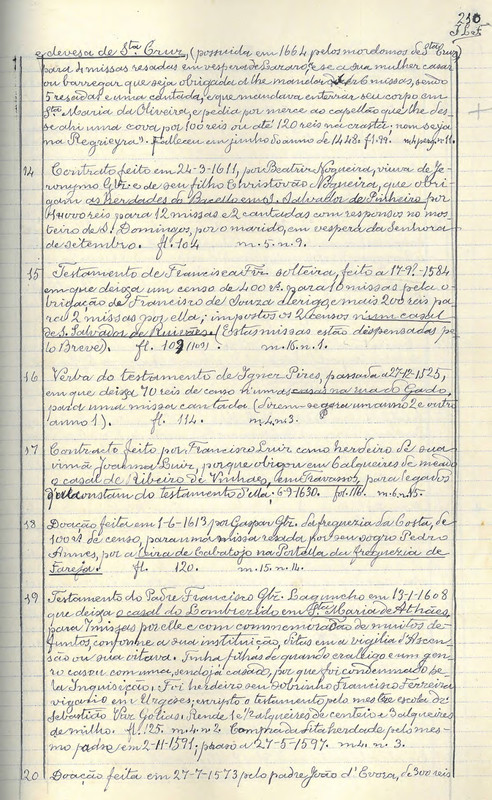 230
e devesa de Sta Cruz, (possuida em 1664 pelos mordomos de Sta Cruz)
para 4 missas resadas em vespera de Lazaro, e se a sua mulher casar
ou barregar que seja obrigada a lhe mandar 6 missas, sendo
5 resadas e uma cantada, e que mandava enterrar seu corpo em
Sta Maria da Oliveira, e pedia por merce ao capellão que lhe des-
se ahi uma cova por 100 reis ou até 120 reis na crasta; nem seja
na Regrieyra. Falleceu em junho do anno de 1448. fl. 99. m. 4
14 Contracto feito em 24-3-1611, por Beatriz Nogueira, viuva de Je-
ronymo Glz e de seu filho Christovão Nogueira, que obri-
gam as herdades do Bacello em S. Salvador de Pinheiro por
reis para 12 missas e 2 cantadas com responsos no mos-
teiro de S. Domingos, por o marido, em vespera da Senhora
de setembro. fl. 104 m. 5. n. 9.
15 Testamento de Francisca Frz. solteira, feito a 17-9-1584
em que deixa um censo de 400 rs. para 10 missas pela o-
brigação de Francisco de Souza clerigo, e mais 200 reis pa-
ra 2 missas por ella; impostos os 2 censos n'um casal
de S. Salvador de Ruivães. (Estas missas estão dispensadas pe-
lo Breve). fl. 109 (109) m. 16. n. 1.
16 Verba do testamento de Ignez Pires, passada a 27-12-1525,
em que deixa 70 reis de censo n'umas casas na rua do Gado,
para uma missa cantada
anno 1). fl. 114. m. 4. n. 3.
17 Contracto feito por Francisco Luiz como herdeiro de sua
irmã Joanna Luiz, porque obrigou em 2 alqueires de meado
o casal de Ribeiro de Vinhaes, em Travassos, para legados
d'ella constam do testamento d'ella. 6-9-1630. fol. 116. m. 6. n. 45.
18 Doação feita em 1-6-1613 por Gaspar Glz. da freguezia da Costa, de
100 rs de censo, para uma missa resada por seu sogro Pedro
Annes, por a leira de Cabatojo na Portella da freguezia de
Fareja. fl. 120. m. 15. n. 14.
19 Testamento do Padre Francisco Glz. Laguncho em 13-1-1608
que deixa o casal do Lombozildo em Sta Maria de Athães
para 7 missas por elle e com commemoração de muitos de-
funtos, conforme a sua instituição, ditas em a vigilia d'Ascen-
são ou sua oitava. Tinha filhas de quando era leigo e um gen-
ro casou com uma, sendo já casado, por que foi condemnado pe-
la Inquisição. Foi herdeiro seu sobrinho Francisco Ferreira
vigario em Urgeses; escripto o testamento pelo mestre escola dr.
Sebastião Vaz Golias. Rende 1 e 1/2 alqueires de centeio e 3 alqueires
de milho. fl. 125. m. 4. n. 2. Compra da dita herdade pelo mes-
mo padre em 2-11-1591; prazo a 27-5-1597. m. 4. n. 3.
20 Doação feita em 27-7-1573 pelo padre João d'Evora, de 300 reis